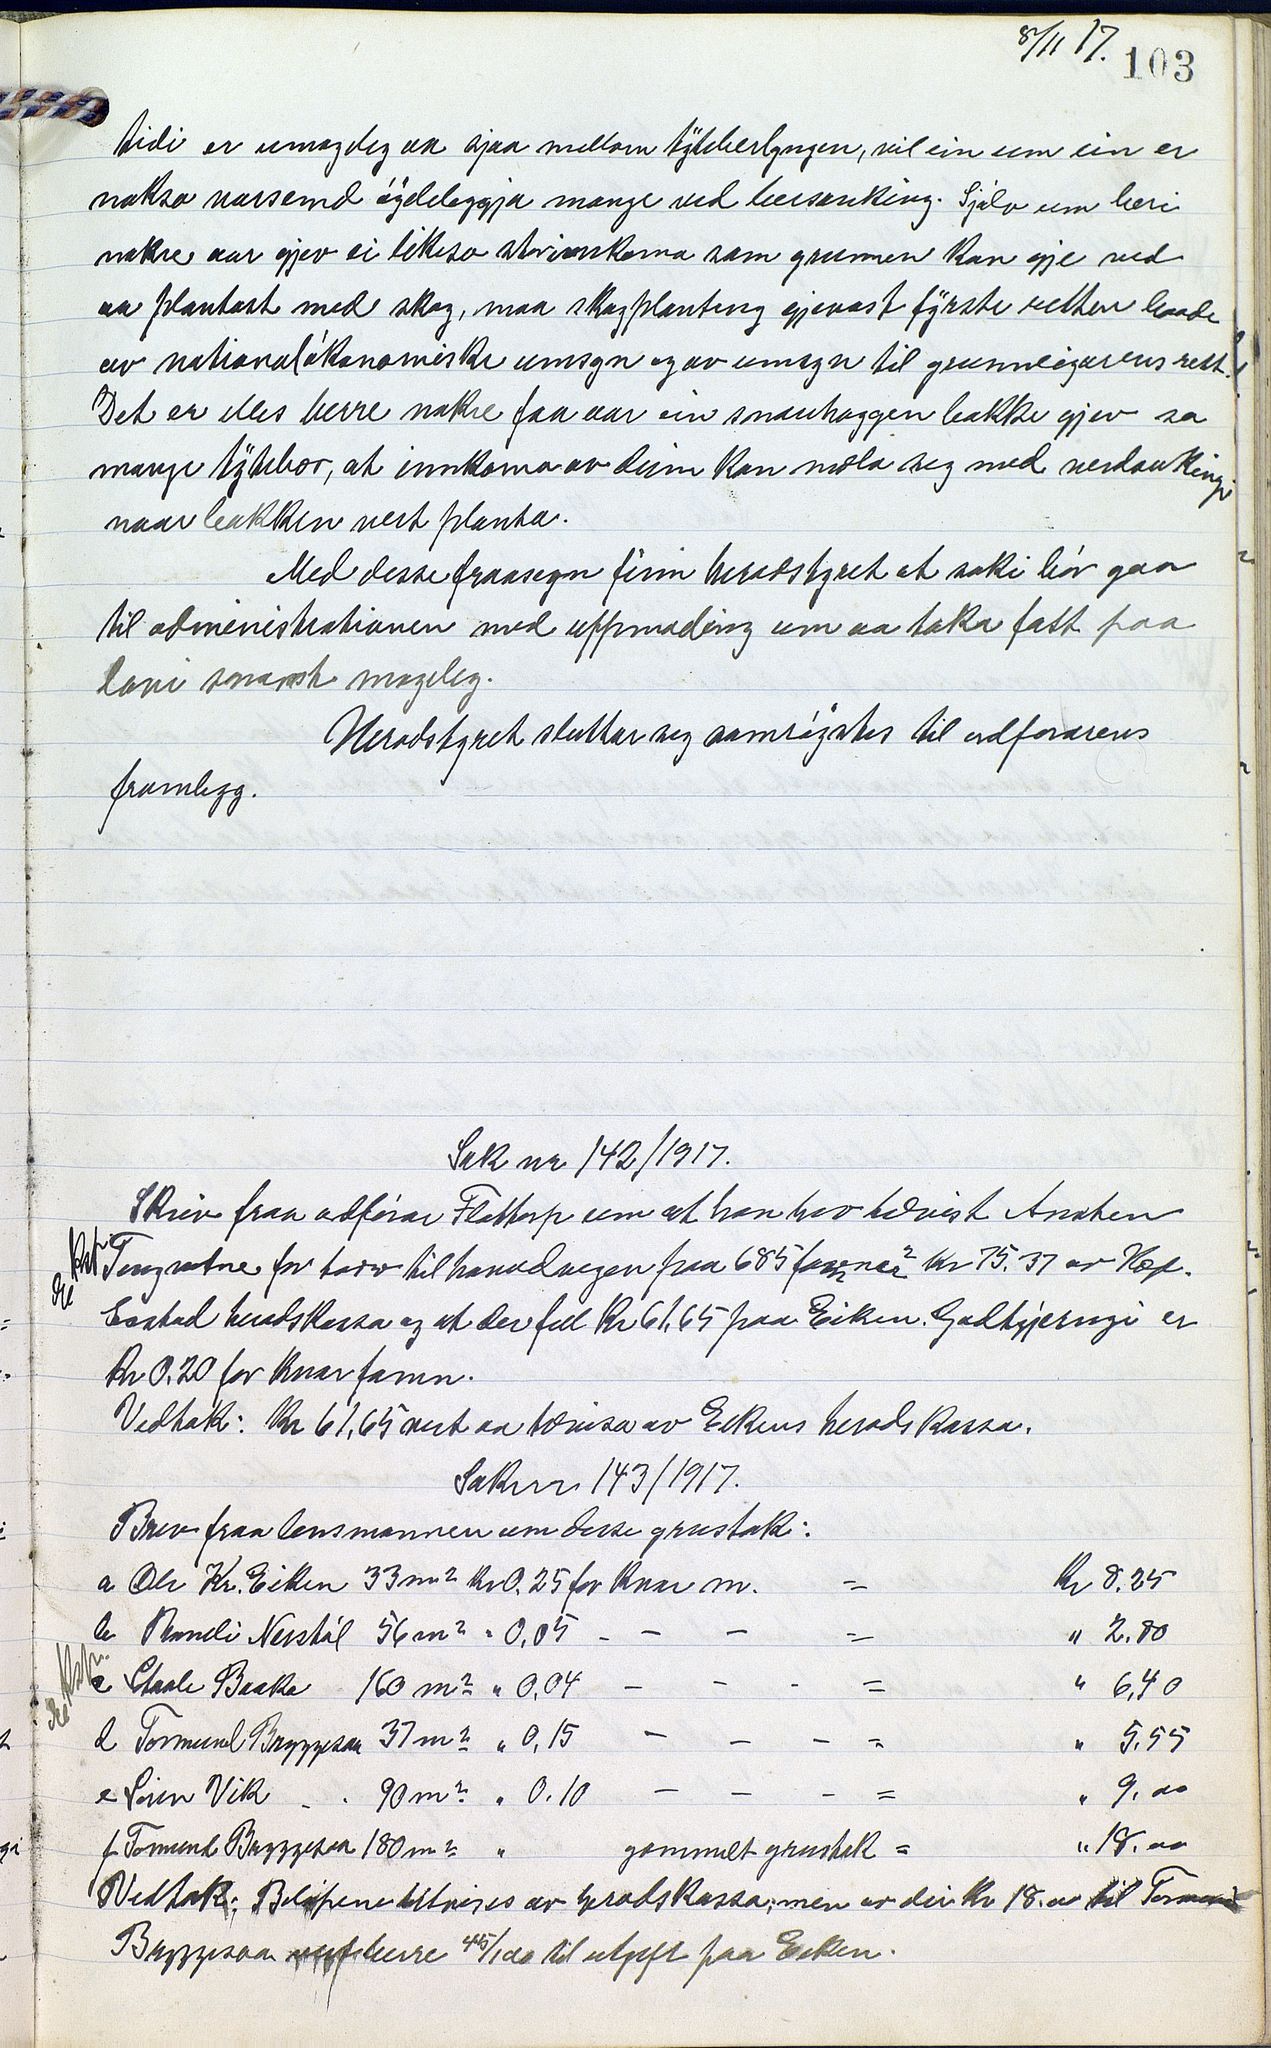 8/11 17. 103
tidi er umogleg aa sjaa mellom tytebærlyngen, vil ein um ein er
nokso varsemd öydeleggja mange ved bærsanking. Sjölv um beri
nokre aar gjev ei likeso stor innkoma som grunnen kan gje ved
aa plantast med skog, maa skogplanting gjevast fyrste retten baade
av nationalökonomiske umsyn og av umsyn til grunneigarens rett.
Det er elles berre nokre faa aar ein snauhoggen bakke gjev so
mange tytebær, at innkoma av deim kan mæla seg med verdaukingi
naar bakken vert planta.
Med desse fraasegn finn heradstyret at saki bör gaa
til administrationen med uppmoding um aa taka fatt paa
lovi snarast mogleg.
Heradstyret sluttar seg samröystes til ordforarens
framlegg.
Sak nr 142/1917.
Skriv fraa ordförar Flottorp um at han hev tilvist Ansten
Tengsvatne for torv til hovudvegen paa 685 famnar² kr 75.37 av Hæg-
bostad heradskassa og at der fell kr 61,65 paa Eiken. Godtgjeringi er
kr 0,20 for kvar famn.
Vedtak: Kr 61,65 vert aa tilvisa av Eikens heradskassa.
Sak nr 143/1917.
Brev fraa lensmannen um desse grustak:
a Ole Kr. Eiken 33 m² kr 0,25 for kvar m. = kr 8.25
b Randi Nerstöl 56 m² " 0,05 - - - = " 2.80
c Staale Baaka 160 m² " 0,04 - - - = " 6,40
d Tormund Bryggesaa 37 m² " 0,15 - - - = " 5.55
e Sören Vik 90 m² " 0.10 - - - = " 9.00
f Tormund Bryggesaa 180 m² " gammalt grustak = " 18.00
Vedtak: Belöpene tilvises av heradskassa, men av dei kr 18.00 til Tormund
Bryggesaa berre 45/100 til utgift paa Eiken.